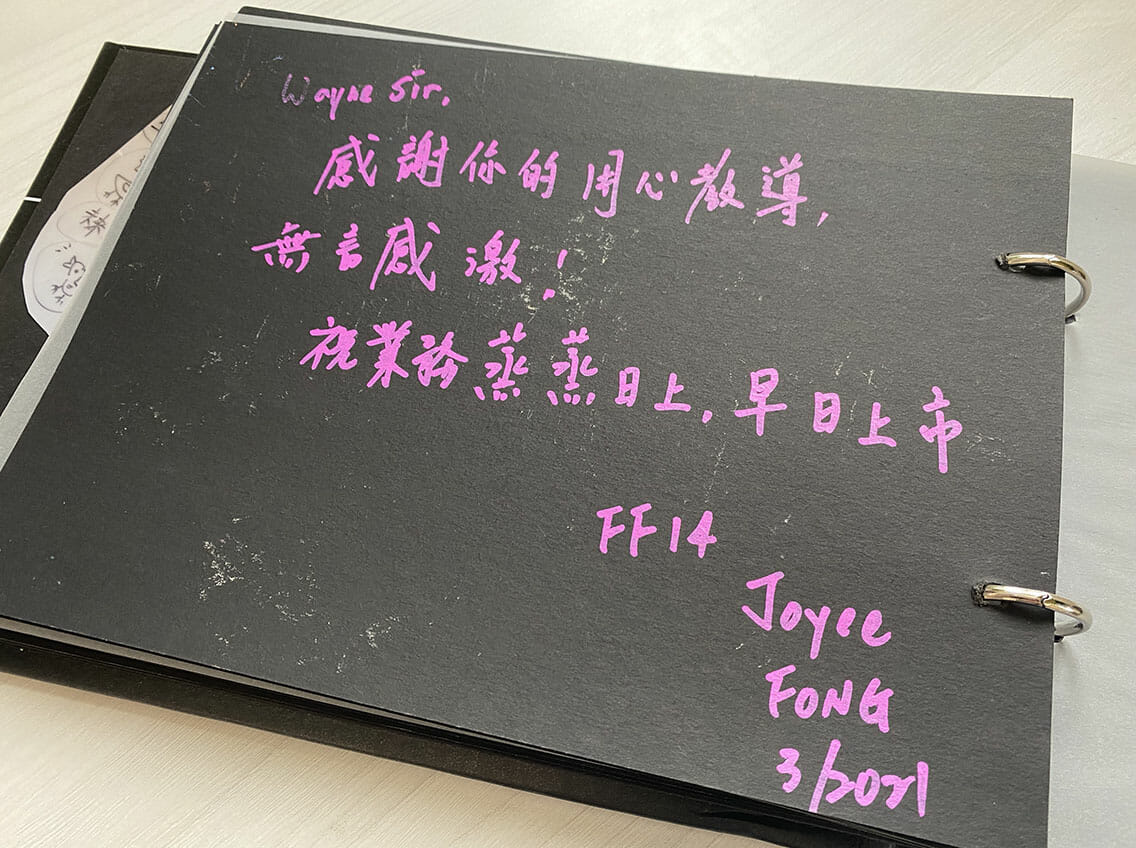 Wayne Sir,
感謝你的用心教導,
無言感激!
祝業務蒸蒸日上,早日上市
FF14
Joyce
FONG
3/2021